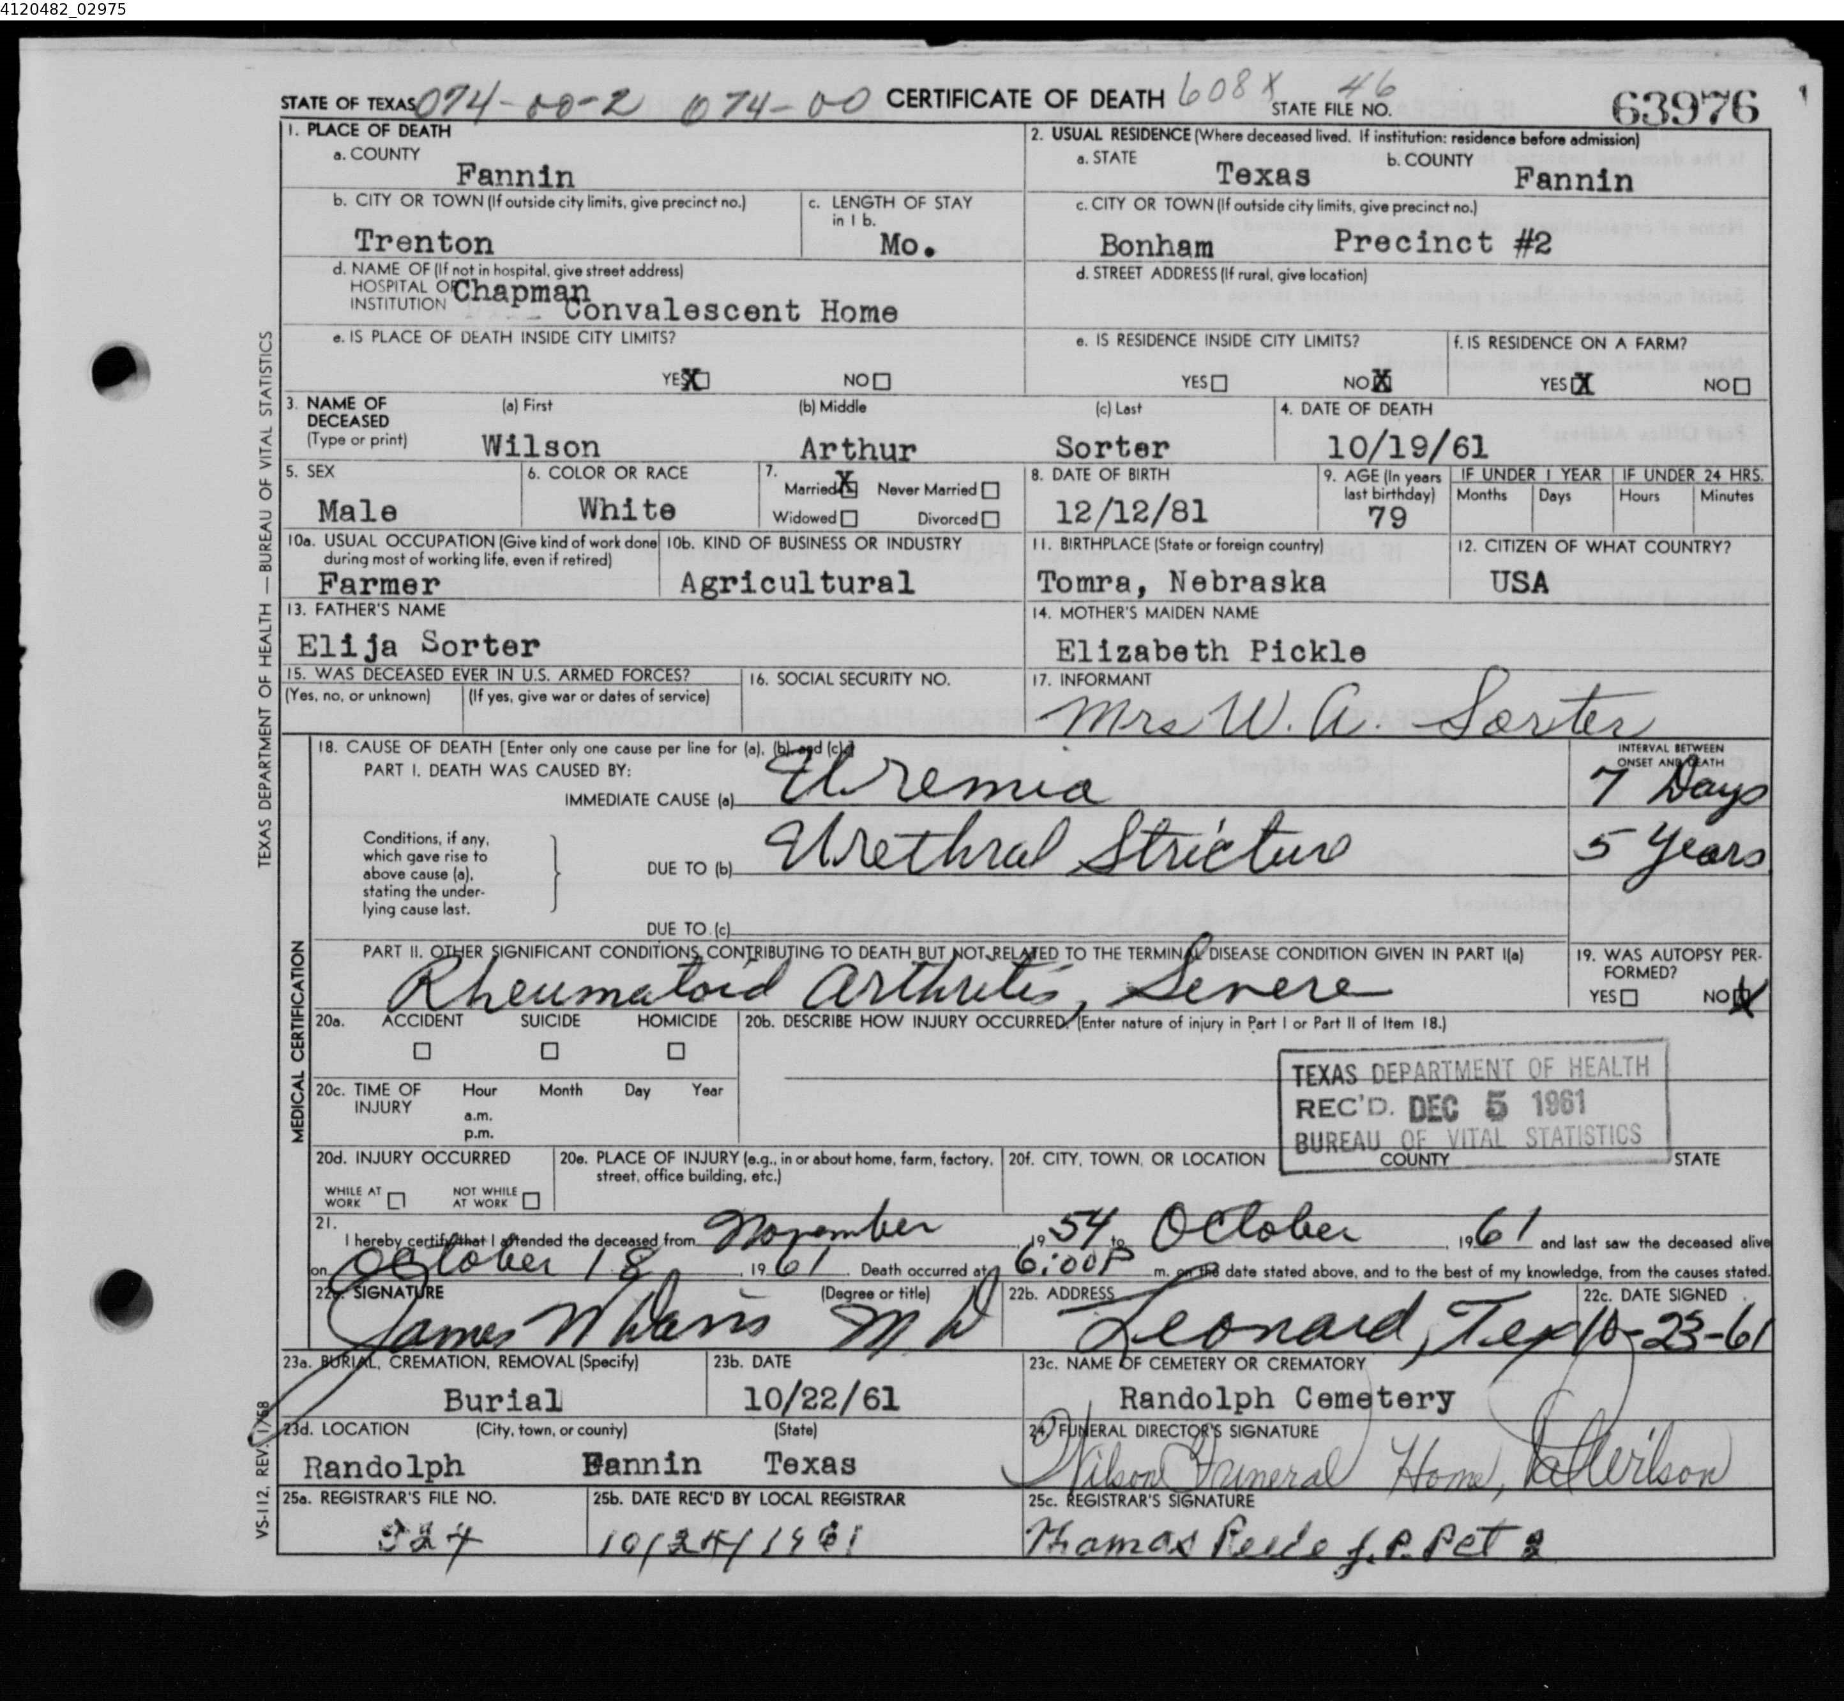 4120482_02975
STATE OF TEXAS 074-00-2 074-00 CERTIFICATE OF DEATH 608X 46 STATE FILE NO. 63976
1. PLACE OF DEATH
a. COUNTY
Fannin
2. USUAL RESIDENCE (Where deceased lived. If institution: residence before admission)
a. STATE b. COUNTY
Texas Fannin
b. CITY OR TOWN (If outside city limits, give precinct no.)
Trenton
c. LENGTH OF STAY
in 1 b.
Mo.
c. CITY OR TOWN (If outside city limits, give precinct no.)
Bonham Precinct #2
d. NAME OF (If not in hospital, give street address)
HOSPITAL OR
INSTITUTION
Chapman
Convalescent Home
d. STREET ADDRESS (If rural, give location)
e. IS PLACE OF DEATH INSIDE CITY LIMITS?
YES X NO
e. IS RESIDENCE INSIDE CITY LIMITS?
YES NO X
f. IS RESIDENCE ON A FARM?
YES X NO
3. NAME OF
DECEASED
(Type or print)
(a) First (b) Middle (c) Last
Wilson Arthur Sorter
4. DATE OF DEATH
10/19/61
5. SEX
Male
6. COLOR OR RACE
White
7.
Married X Never Married
Widowed Divorced
8. DATE OF BIRTH
12/12/81
9. AGE (In years
last birthday)
79
IF UNDER 1 YEAR IF UNDER 24 HRS.
Months Days Hours Minutes
10a. USUAL OCCUPATION (Give kind of work done
during most of working life, even if retired)
Farmer
10b. KIND OF BUSINESS OR INDUSTRY
Agricultural
11. BIRTHPLACE (State or foreign country)
Tomra, Nebraska
12. CITIZEN OF WHAT COUNTRY?
USA
13. FATHER'S NAME
Elija Sorter
14. MOTHER'S MAIDEN NAME
Elizabeth Pickle
15. WAS DECEASED EVER IN U.S. ARMED FORCES?
(Yes, no, or unknown) (If yes, give war or dates of service)
16. SOCIAL SECURITY NO.
17. INFORMANT
Mrs W. A. Sorter
TEXAS DEPARTMENT OF HEALTH — BUREAU OF VITAL STATISTICS
MEDICAL CERTIFICATION
18. CAUSE OF DEATH [Enter only one cause per line for (a), (b) and (c).]
PART I. DEATH WAS CAUSED BY:
IMMEDIATE CAUSE (a) Uremia
INTERVAL BETWEEN
ONSET AND DEATH
7 Days
Conditions, if any,
which gave rise to
above cause (a),
stating the under-
lying cause last.
DUE TO (b) Urethral Stricture
5 Years
DUE TO (c)
PART II. OTHER SIGNIFICANT CONDITIONS CONTRIBUTING TO DEATH BUT NOT RELATED TO THE TERMINAL DISEASE CONDITION GIVEN IN PART I(a)
Rheumatoid Arthritis, Severe
19. WAS AUTOPSY PER-
FORMED?
YES NO X
20a. ACCIDENT SUICIDE HOMICIDE
20b. DESCRIBE HOW INJURY OCCURRED. (Enter nature of injury in Part I or Part II of Item 18.)
20c. TIME OF
INJURY
Hour Month Day Year
a.m.
p.m.
TEXAS DEPARTMENT OF HEALTH
REC'D. DEC 5 1961
BUREAU OF VITAL STATISTICS
20d. INJURY OCCURRED
WHILE AT
WORK
NOT WHILE
AT WORK
20e. PLACE OF INJURY (e.g., in or about home, farm, factory,
street, office building, etc.)
20f. CITY, TOWN, OR LOCATION COUNTY STATE
21.
I hereby certify that I attended the deceased from November, 1954 to October, 1961 and last saw the deceased alive
on October 18, 1961. Death occurred at 6:00P m. on the date stated above, and to the best of my knowledge, from the causes stated.
22a. SIGNATURE (Degree or title)
James W Davis M D
22b. ADDRESS
Leonard, Tex
22c. DATE SIGNED
10-23-61
23a. BURIAL, CREMATION, REMOVAL (Specify)
Burial
23b. DATE
10/22/61
23c. NAME OF CEMETERY OR CREMATORY
Randolph Cemetery
23d. LOCATION (City, town, or county) (State)
Randolph Fannin Texas
24. FUNERAL DIRECTOR'S SIGNATURE
Wilson Funeral Home, Wilson
25a. REGISTRAR'S FILE NO.
324
25b. DATE REC'D BY LOCAL REGISTRAR
10/24/1961
25c. REGISTRAR'S SIGNATURE
Thomas J.P. Pct 2
VS-112, REV. 1/58